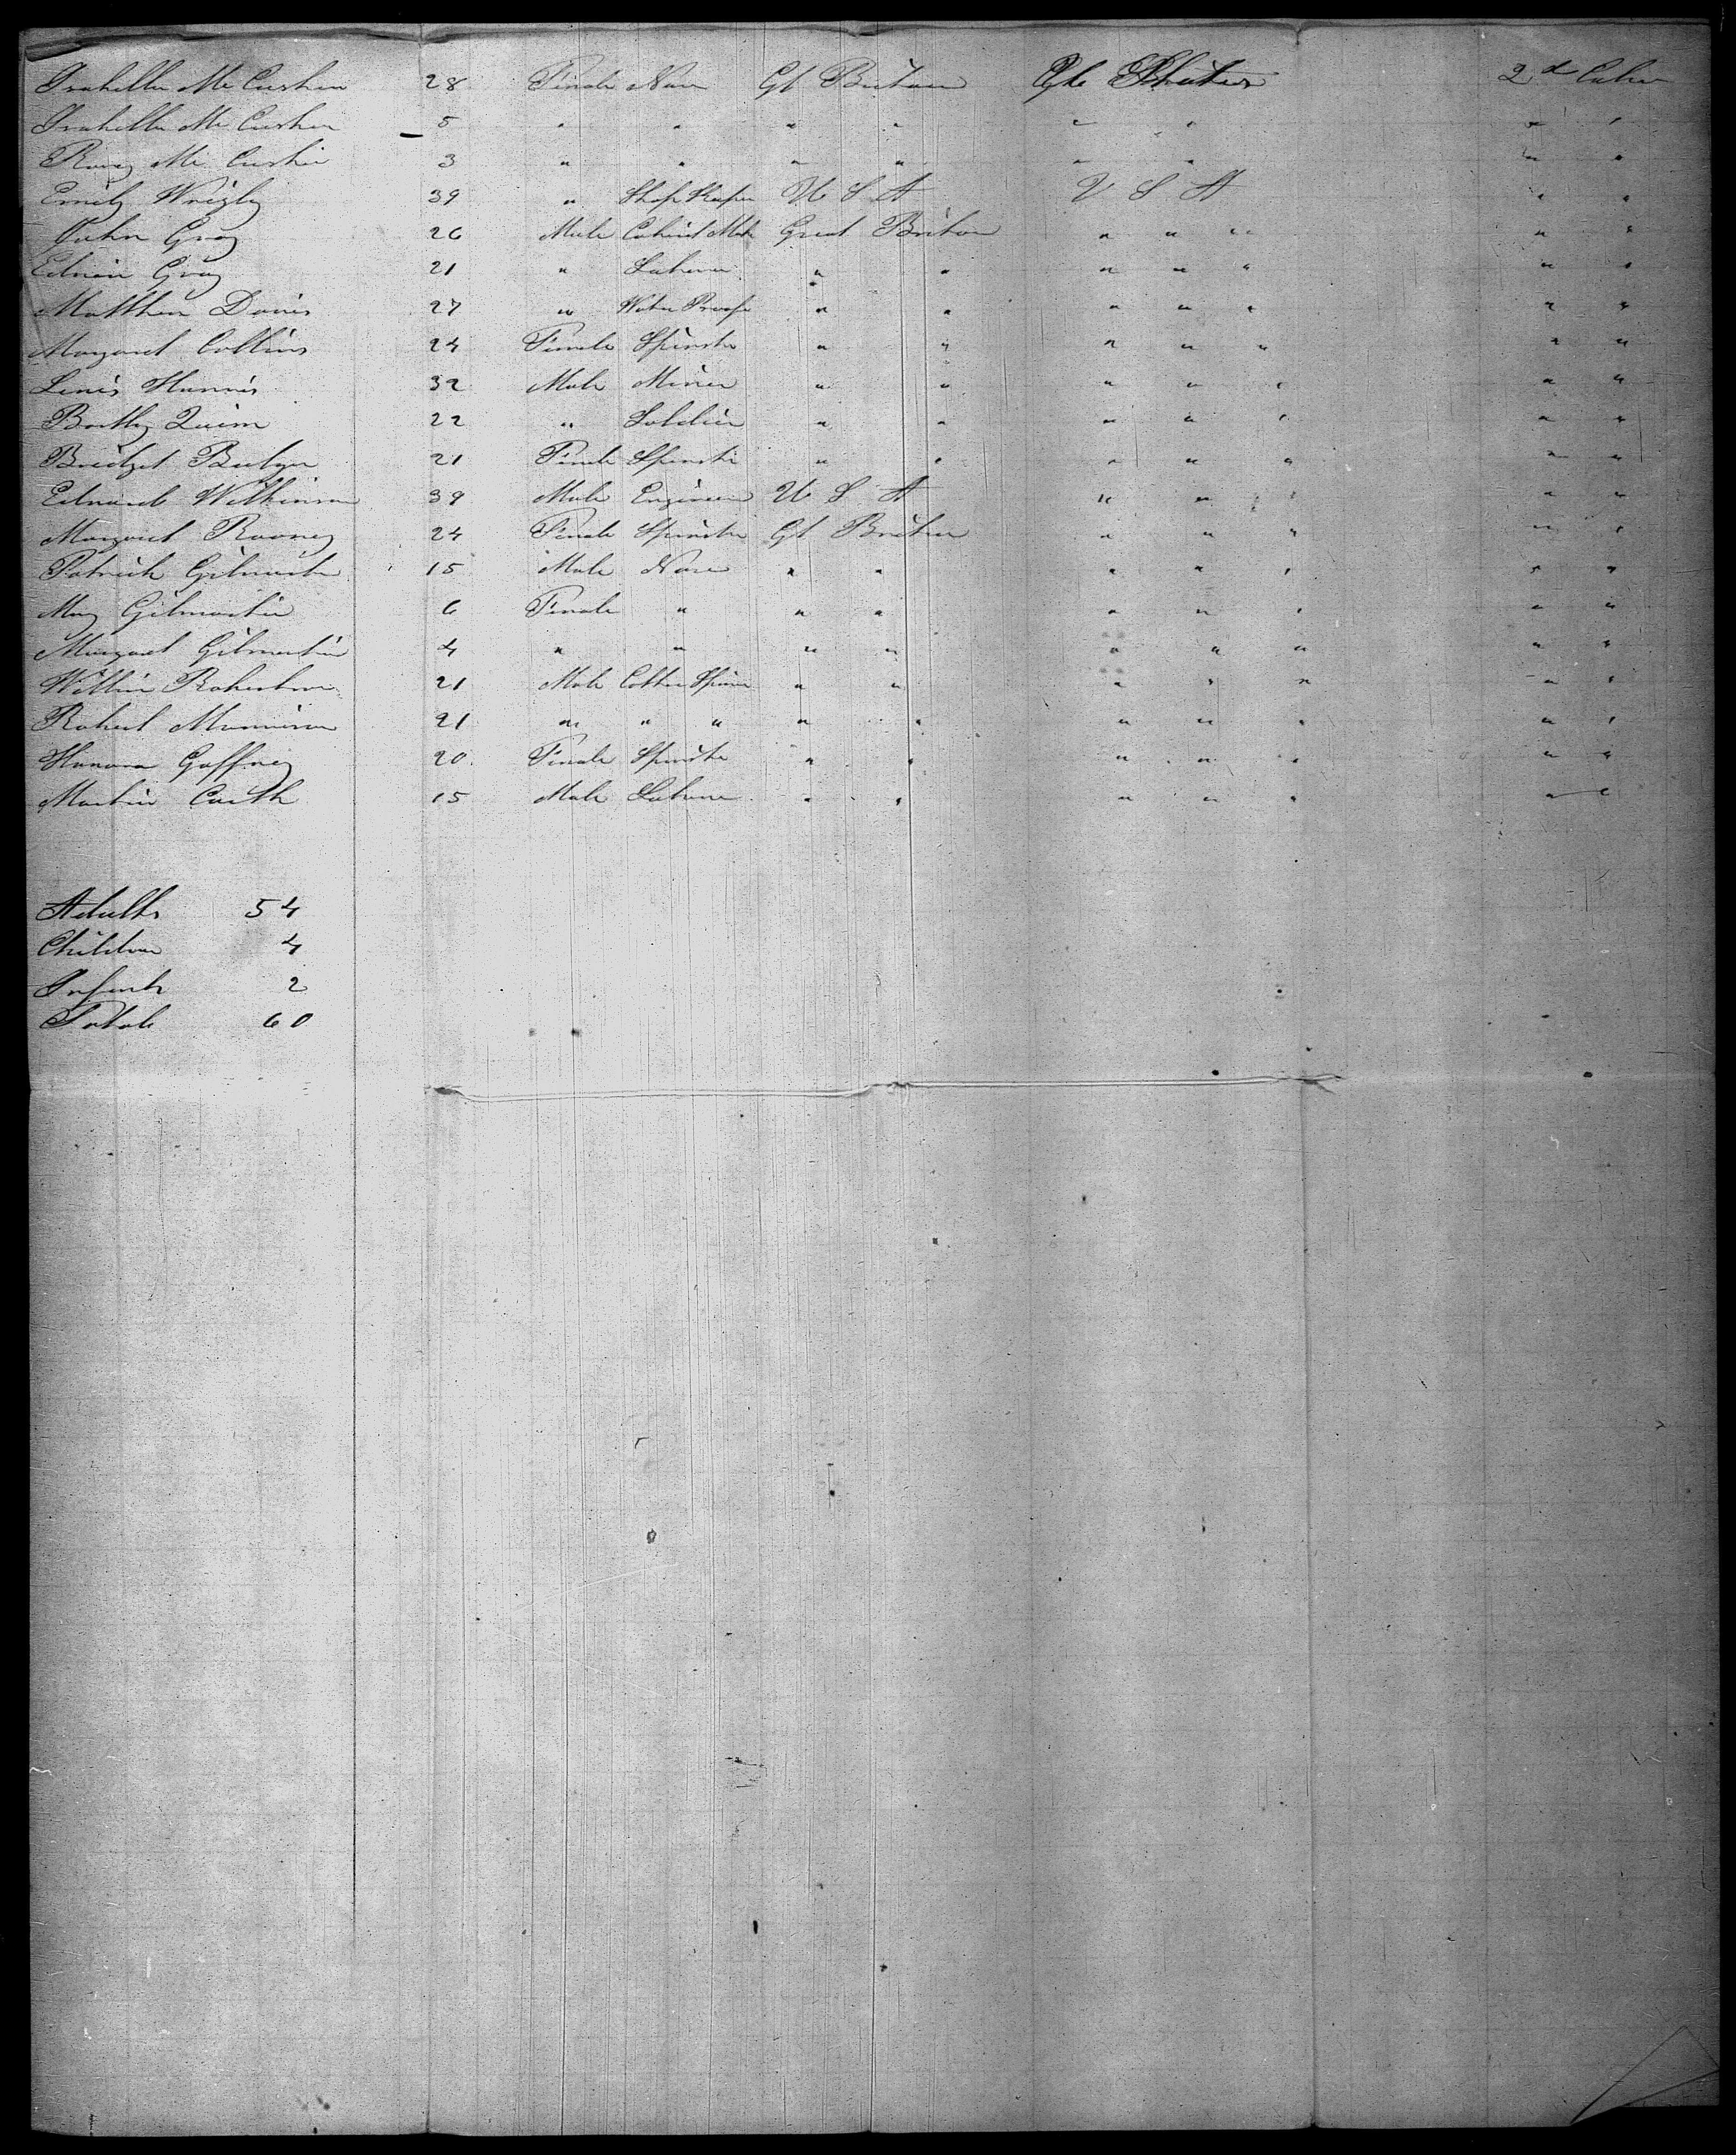 Isabella Mc Cushen 28 Female None Gt Britain 2d Cabin
Isabella Mc Cushen 5 " " " " " " " "
Mc Cushen 3 " " " " " " " "
Emily Wrigley 39 " Shop Keeper U S A U S A " "
John Gray 26 Male Cabinet Mak Great Britain " " " " "
Edwin Gray 21 " Laborer " " " " " " "
Matthew Davies 27 " Water Proofer " " " " " " "
Margaret Collins 24 Female Spinster " " " " " " "
Lewis Harris 32 Male Miner " " " " " " "
Bartley Quinn 22 " Soldier " " " " " " "
Bridget Bulger 21 Female Spinster " " " " " " "
Edward Wilkinson 39 Male Engineer U S A " " " " "
Margaret Rooney 24 Female Spinster Gt Britain " " " " "
Patrick Gilmartin 15 Male None " " " " " " "
May Gilmartin 6 Female " " " " " " " "
Margaret Gilmartin 4 " " " " " " " " "
William Robertson 21 Male Cotton Spinner " " " " " " "
Robert Morrison 21 " " " " " " " " " "
Hanora Gaffney 20 Female Spinster " " " " " " "
Martin 15 Male Laborer " " " " " " "
Adults 54
Children 4
Infants 2
Total 60